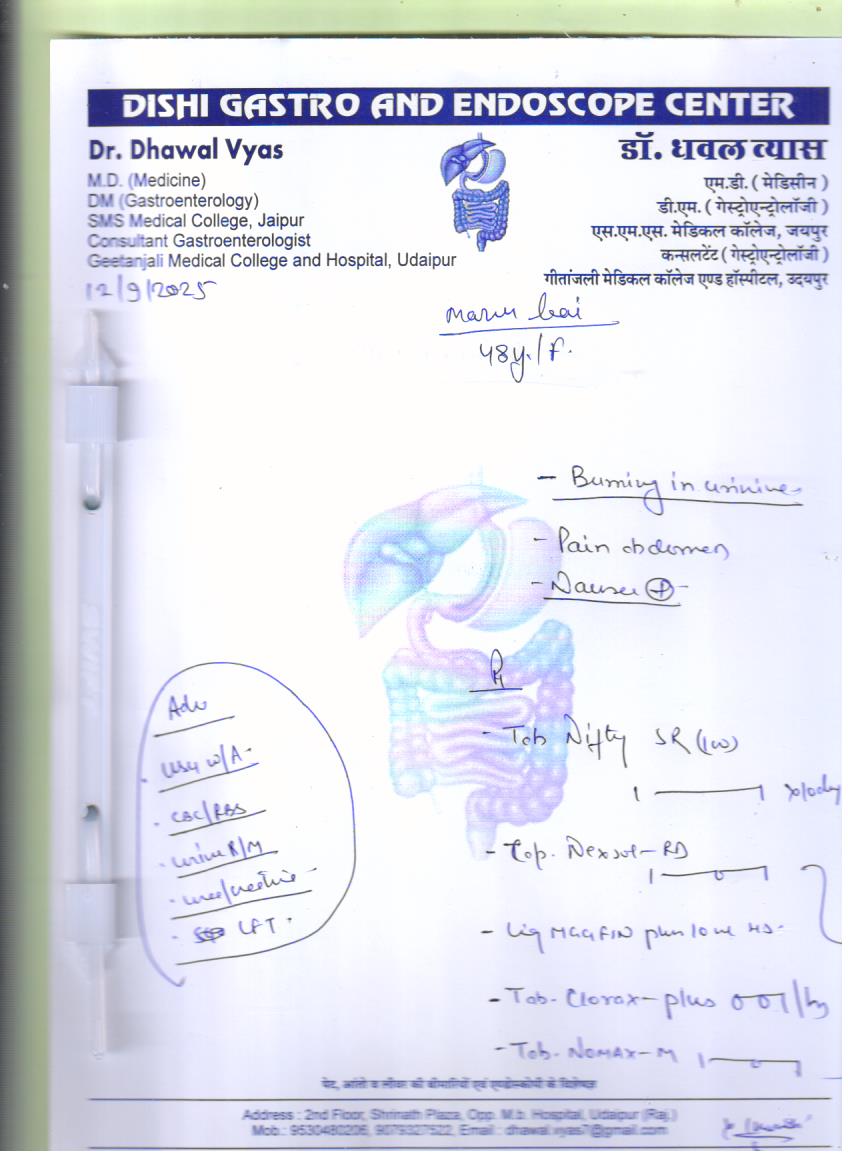 DISHI GASTRO AND ENDOSCOPE CENTER
Dr. Dhawal Vyas
M.D. (Medicine)
DM (Gastroenterology)
SMS Medical College, Jaipur
Consultant Gastroenterologist
Geetanjali Medical College and Hospital, Udaipur
डॉ. धवल व्यास
एम.डी. ( मेडिसीन )
डी.एम. ( गेस्ट्रोएन्ट्रोलॉजी )
एस.एम.एस. मेडिकल कॉलेज, जयपुर
कन्सलटेंट ( गेस्ट्रोएन्ट्रोलॉजी )
गीतांजली मेडिकल कॉलेज एण्ड हॉस्पीटल, उदयपुर
12/9/2025
bai
48y./F.
- Burning in urinine
- Pain abdomen
- Nausea +
Adv
USG W/A
. CBC/RBS
. urine R/M
. LFT
Rx
- Tab Nifty SR (100)
1 1
- Cap. RD
1 0 1
- Liq plus HS
- Tab. Clorax-plus 001
- Tab. NOMAX-M 1 0 1
पेट, आंतो व लीवर की बीमारियों एवं एण्डोस्कोपी के विशेषज्ञ
Address : 2nd Floor, Shrinath Plaza, Opp. M.b. Hospital, Udaipur (Raj.)
Mob.: 9530480206, 9079327522, Email : dhawal.vyas7@gmail.com